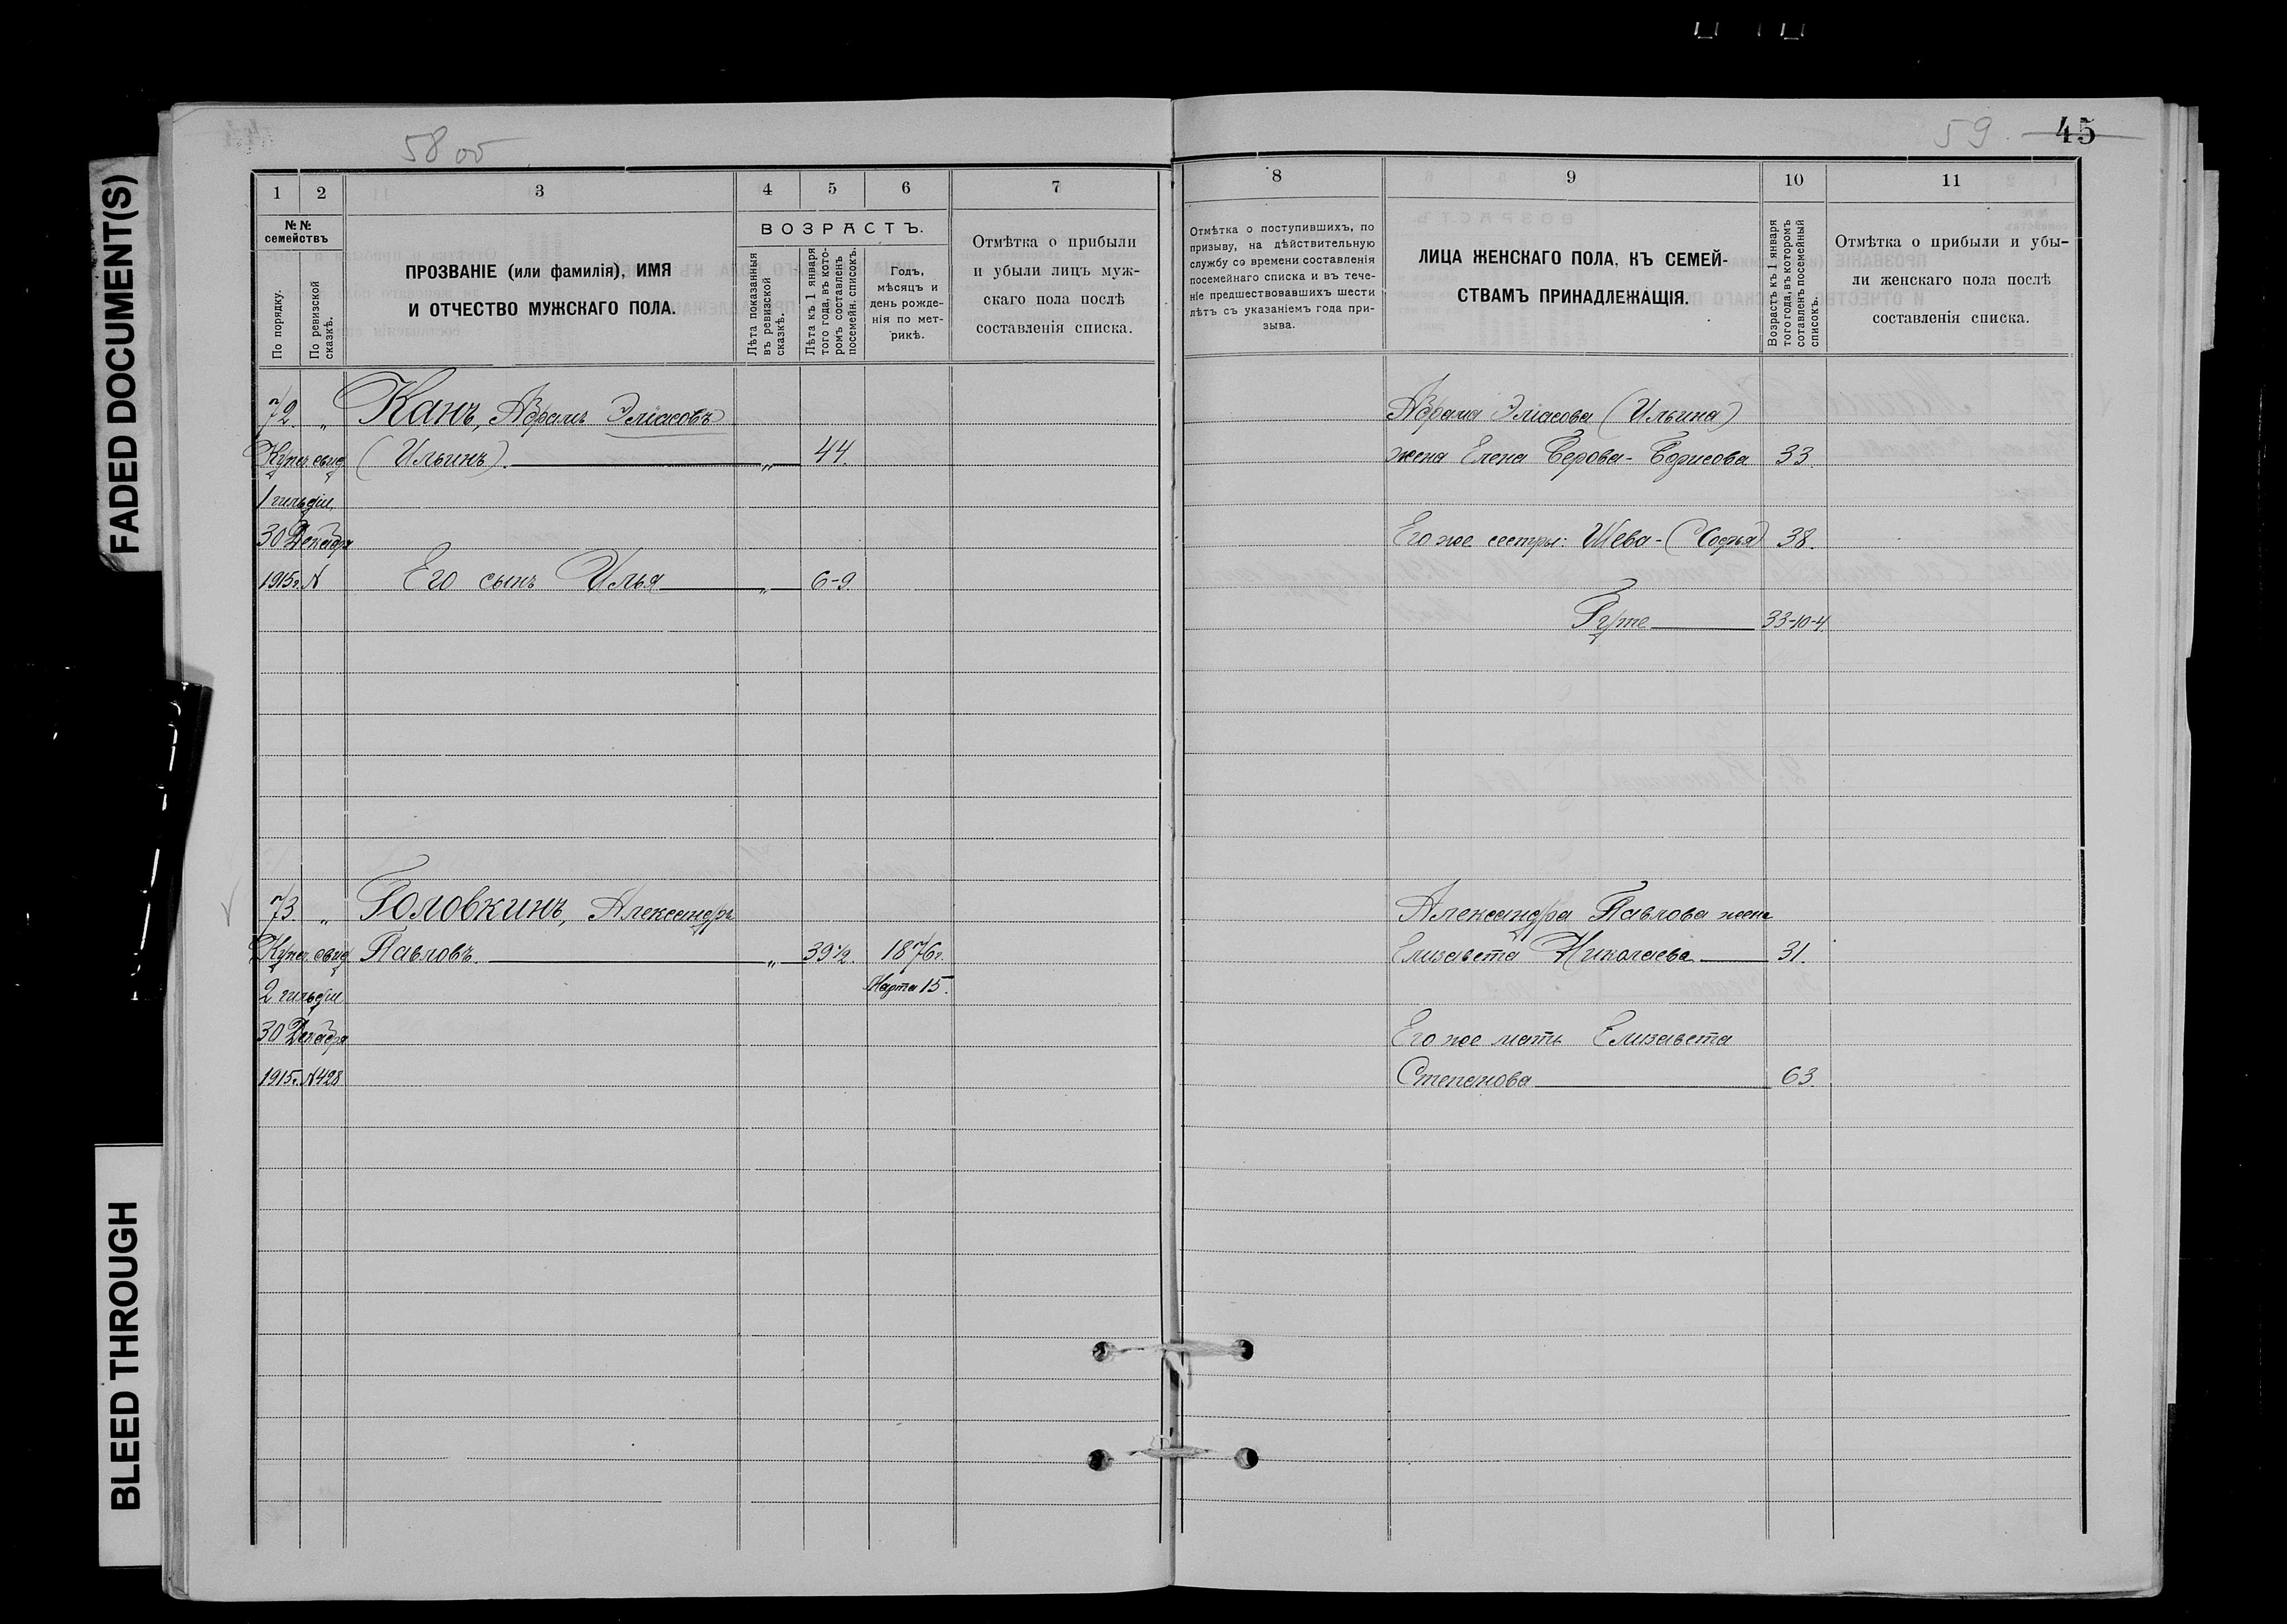 FADED DOCUMENT(S)
BLEED THROUGH
58 об
1
2
3
4
5
6
7
№№ семействъ
По порядку.
По ревизской сказкѣ.
ПРОЗВАНІЕ (или фамилія), ИМЯ
И ОТЧЕСТВО МУЖСКАГО ПОЛА.
ВОЗРАСТЪ.
Лѣта показанныя въ ревизской сказкѣ.
Лѣта къ 1 января того года, въ которомъ составленъ посемейн. списокъ.
Годъ, мѣсяцъ и день рожденія по метрикѣ.
Отмѣтка о прибыли
и убыли лицъ муж-
скаго пола послѣ
составленія списка.
72. „ Канъ, Абрамъ Эліасовъ
Купеч. свид. (Ильинъ) „ 44.
1 гильдіи
30 Декабря
1915г. N Его сынъ Илья „ 6-9.
73. „ Головкинъ, Александръ
Купеч. свид. Павловъ. „ 39½. 1876г.
2 гильдіи Марта 15.
30 Декабря
1915г. N428
59 45
8
9
10
11
Отмѣтка о поступившихъ, по
призыву, на дѣйствительную
службу со времени составленія
посемейнаго списка и въ тече-
ніе предшествовавшихъ шести
лѣтъ съ указаніемъ года при-
зыва.
ЛИЦА ЖЕНСКАГО ПОЛА, КЪ СЕМЕЙ-
СТВАМЪ ПРИНАДЛЕЖАЩІЯ.
Возрастъ къ 1 января того года, въ которомъ составленъ посемейный списокъ.
Отмѣтка о прибыли и убы-
ли женскаго пола послѣ
составленія списка.
Абрама Эліасова (Ильина)
жена Елена Берова-Борисова 33.
Его же сестры: Шева-(Софья) 38.
Гуте 33-10-4
Александра Павлова жена
Елизавета Николаева 31.
Его же мать Елизавета
Степанова 63.